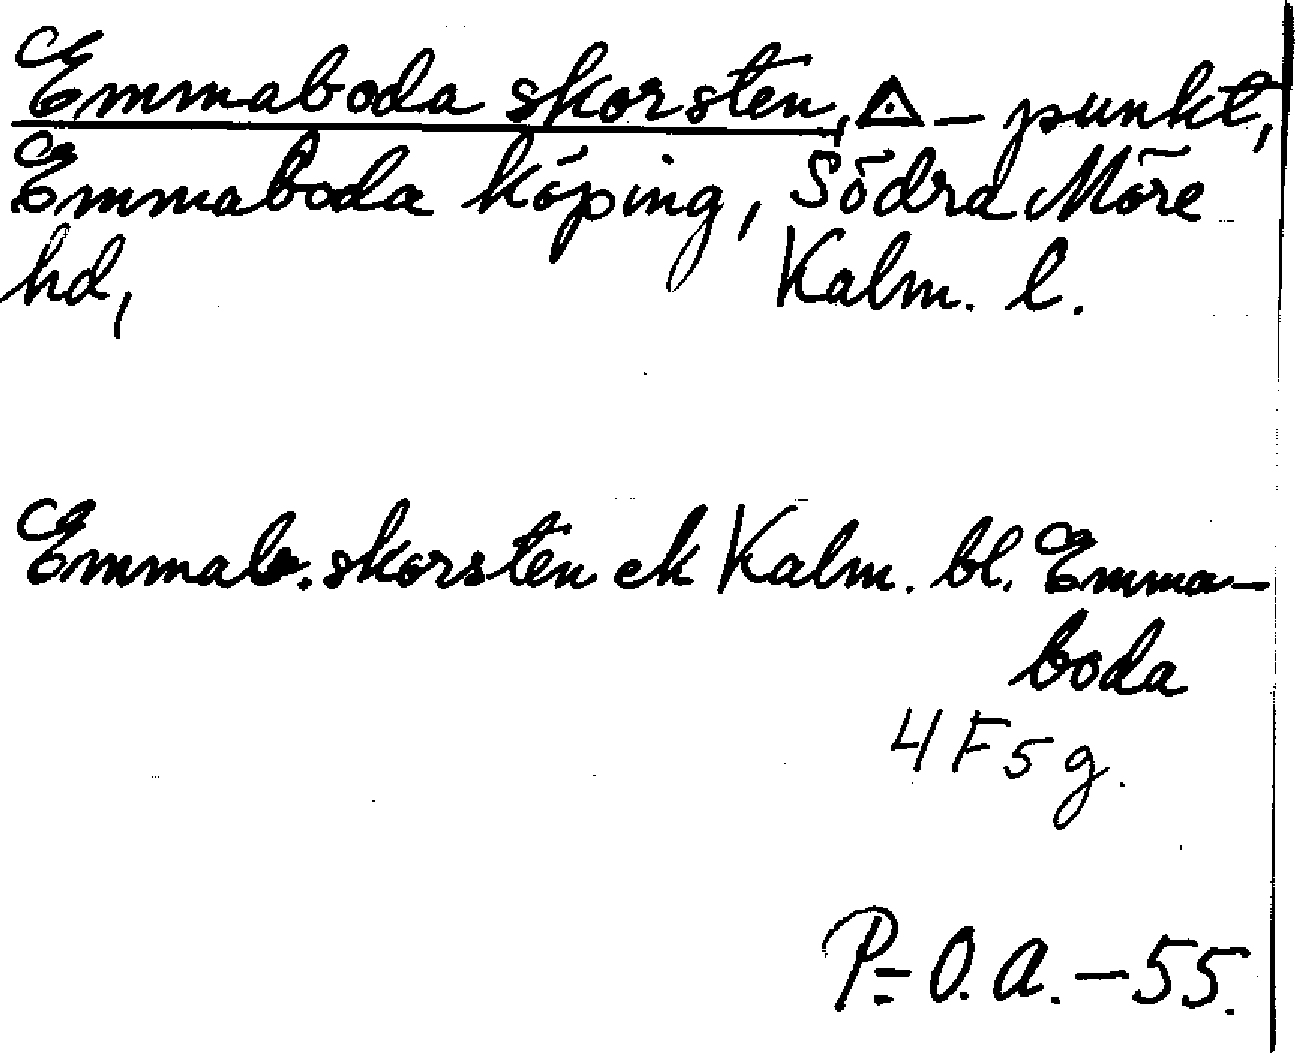 Emmaboda skorsten, △ - punkt,
Emmaboda köping, Södra Möre
hd, Kalm. l.
Emmab. skorsten ek Kalm. bl. Emma-
boda
4F5g.
P-O.A.-55.